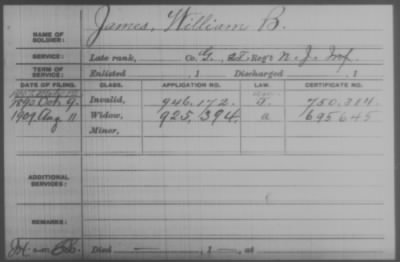 James, William B.
NAME OF SOLDIER:
SERVICE: Late rank, Co. G, 25 Reg't N. J. Inf.
TERM OF SERVICE: Enlisted , 1 Discharged , 1
DATE OF FILING. CLASS. APPLICATION NO. LAW. CERTIFICATE NO.
1890 Oct. 9. Invalid, 946.172. 750.314
1909 Aug 11 Widow, 925,394 a 695645
Minor,
ADDITIONAL SERVICES:
REMARKS:
Died — , 1 — , at